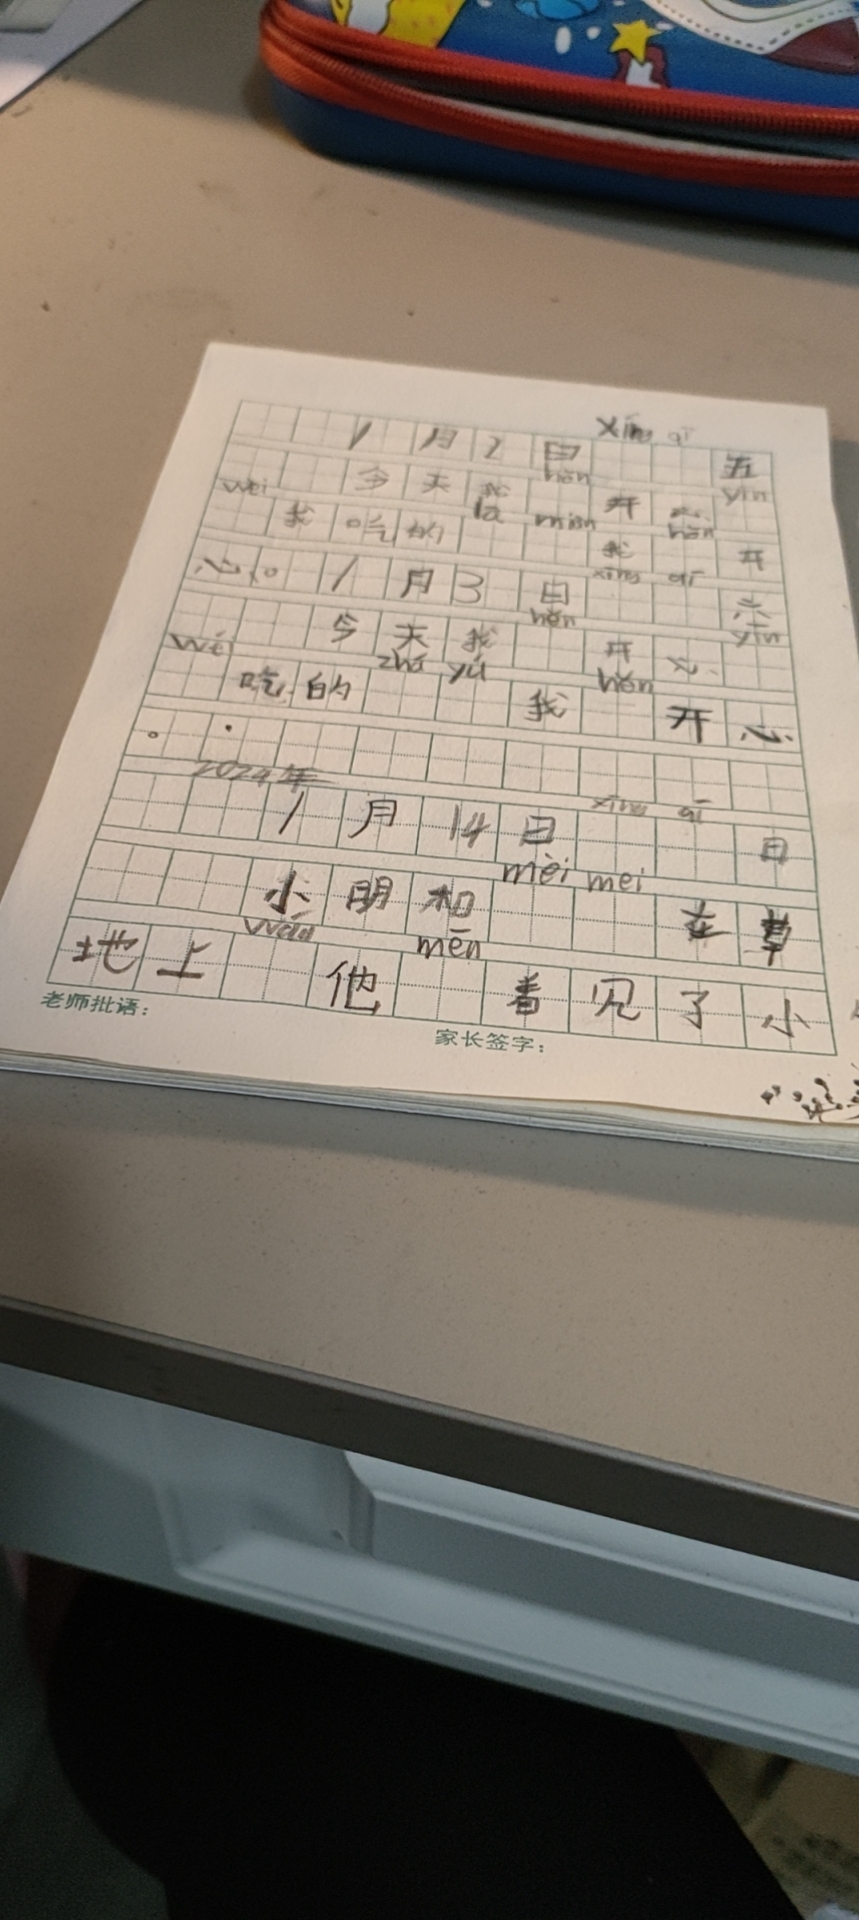 xīng qī
1月2日 五
hěn yīn
今天我 开心
wèi la mian hěn
我吃的 我 开
xīng qī
心。1月3日 六
hěn yīn
今天我 开心
wéi zhá yú hěn
吃的 我 开心
。
2024年 xīng qī
1月14日 日
mèi mei
小明和 在草
wán mēn
地上 他 看见了小
老师批语：
家长签字：